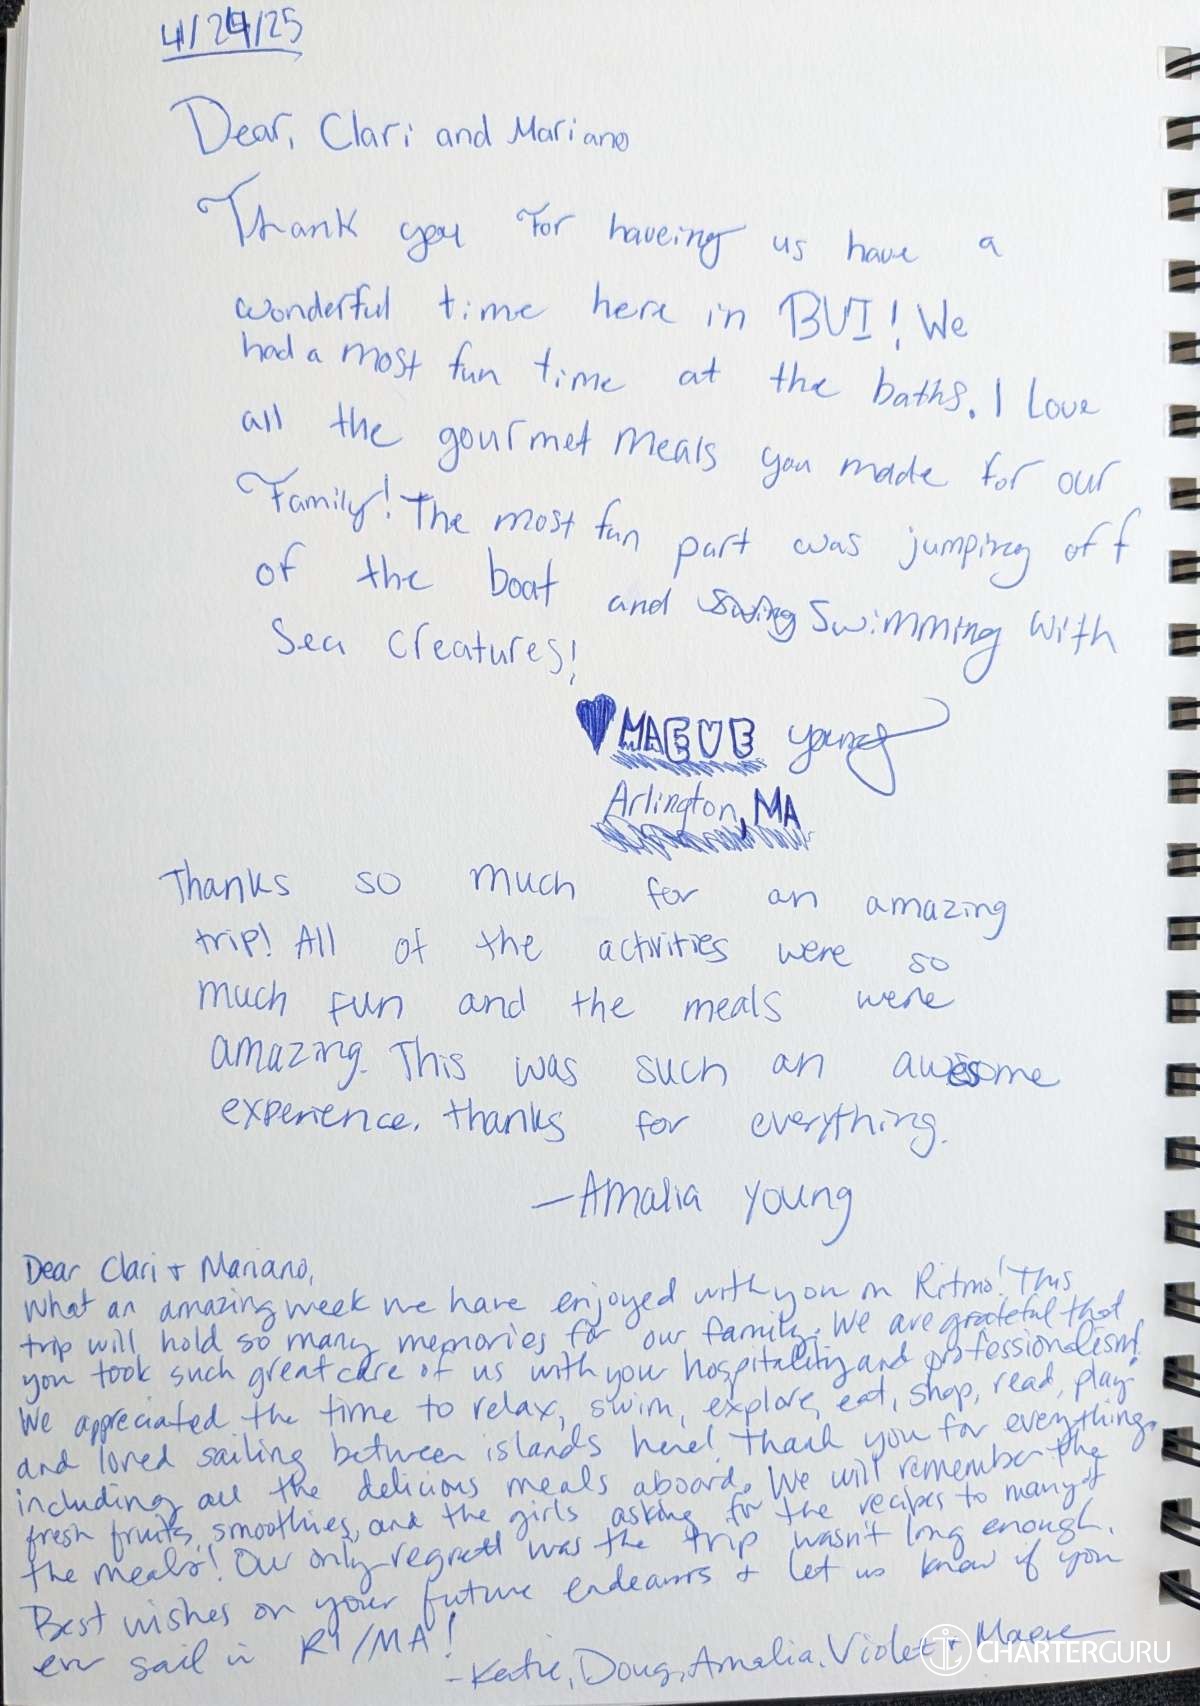 4/24/25
Dear, Clari and Mariano
Thank you for haveing us have a
wonderful time here in BVI! We
had a most fun time at the baths. I Love
all the gourmet meals you made for our
Family! The most fun part was jumping off
of the boat and swimming with
Sea Creatures!
MAEVE Young
Arlington, MA
Thanks so much for an amazing
trip! All of the activities were so
much fun and the meals were
amazing. This was such an awesome
experience. thanks for everything.
—Amalia Young
Dear Clari + Mariano,
What an amazing week we have enjoyed with you on Ritmo! This
trip will hold so many memories for our family. We are grateful that
you took such great care of us with your hospitality and professionalism!
We appreciated the time to relax, swim, explore, eat, shop, read, play
and loved sailing between islands here! Thank you for everything,
including all the delicious meals aboard. We will remember the
fresh fruits, smoothies, and the girls asking for the recipes to many of
the meals! Our only regret was the trip wasn't long enough.
Best wishes on your future endeavors + let us know if you
ever sail in RI/MA!
-Katie, Doug, Amalia, Violet + Maeve
CHARTERGURU